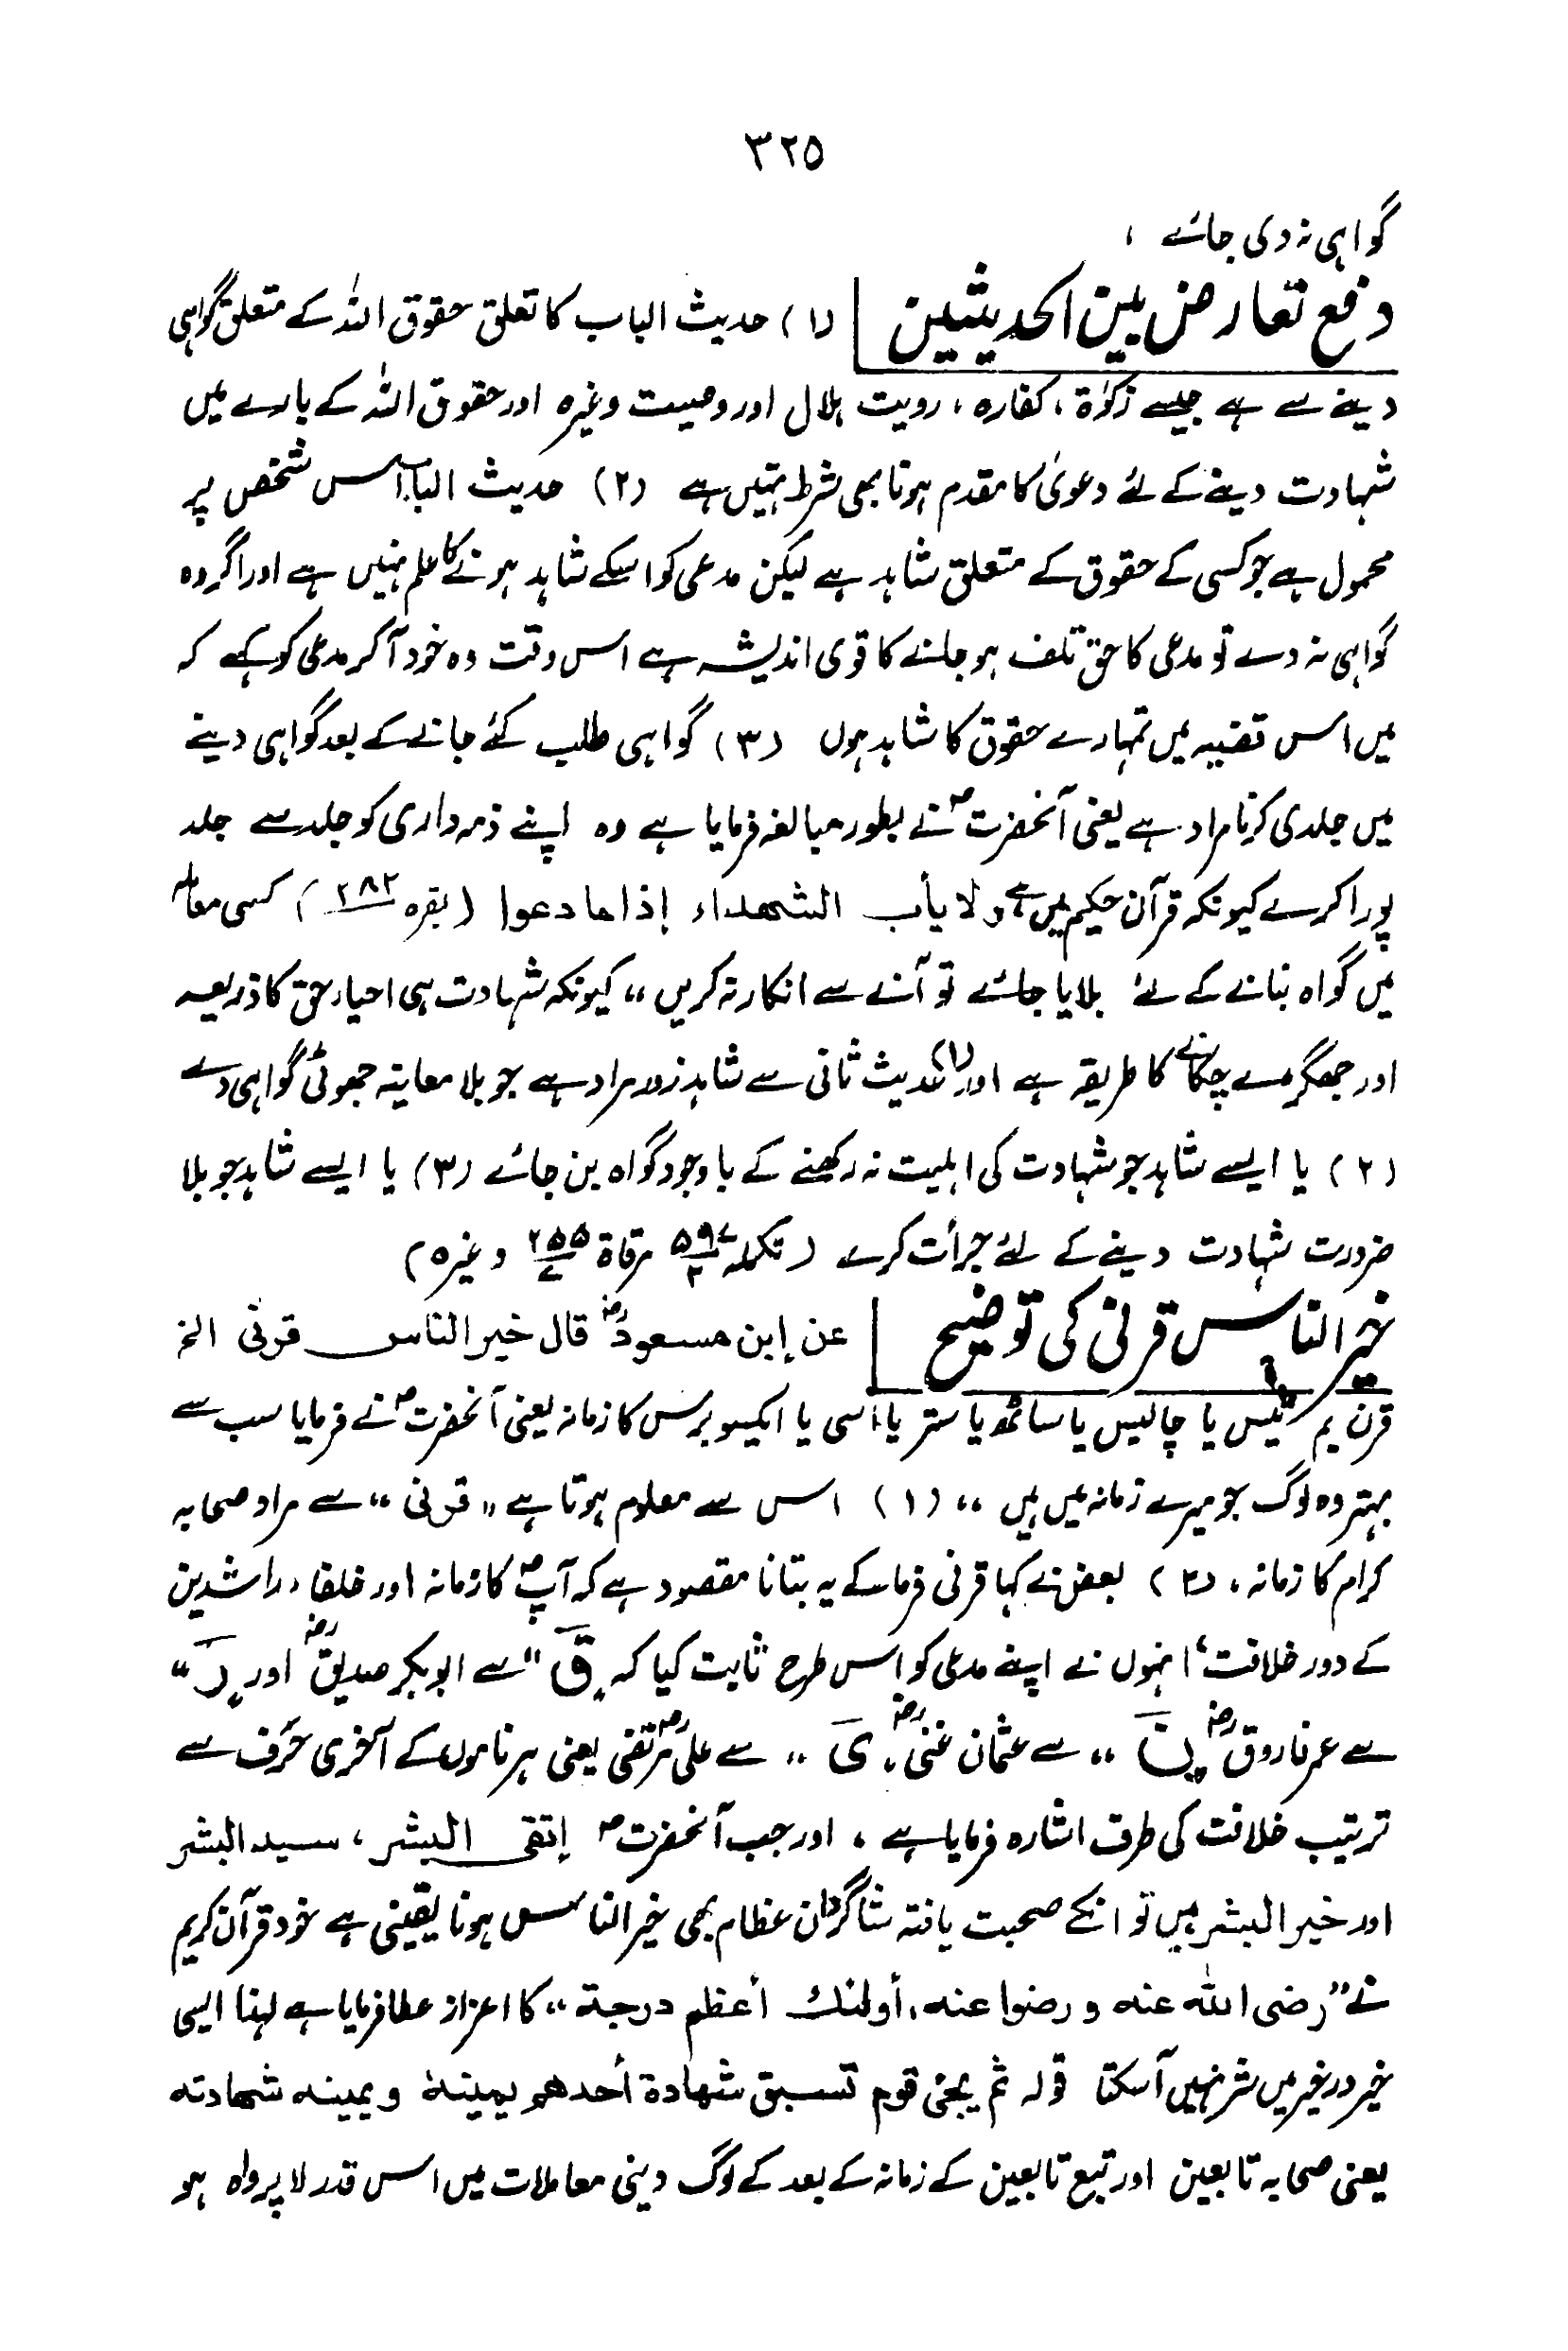 ۳۲۵
گواہی نہ دی جائے ،
دفع تعارض بین الحدیثین | (۱) حدیث الباب کا تعلق حقوق اللہ کے متعلق گواہی
دینے سے ہے جیسے زکوٰۃ ، کفارہ ، رویت ہلال اور وصیت وغیرہ اور حقوق اللہ کے بارے میں
شہادت دینے کے لئے دعویٰ کا مقدم ہونا بھی شرط نہیں ہے (۲) حدیث الباب اس شخص پر
محمول ہے جو کسی کے حقوق کے متعلق شاہد ہے لیکن مدعی کو اسکے شاہد ہونے کا علم نہیں ہے اور اگر وہ
گواہی نہ دے تو مدعی کا حق تلف ہو جانے کا قوی اندیشہ ہے اس وقت وہ خود آکر مدعی کو کہے کہ
میں اس قضیہ میں تمہارے حقوق کا شاہد ہوں (۳) گواہی طلب کئے جانے کے بعد گواہی دینے
میں جلدی کرنا مراد ہے یعنی آنحضرتؐ نے بطور مبالغہ فرمایا ہے وہ اپنے ذمہ داری کو جلد سے جلد
پورا کرے کیونکہ قرآن حکیم میں ہے ولا یأب الشھداء إذا ما دعوا (بقرہ ۲۸۲) کسی معاملہ
میں گواہ بنانے کے لئے بلایا جائے تو آنے سے انکار نہ کریں ،، کیونکہ شہادت ہی احیاء حق کا ذریعہ
اور جھگڑے چکانے کا طریقہ ہے اور (۱) حدیث ثانی سے شاہد زور مراد ہے جو بلا معاینہ جھوٹی گواہی دے
(۲) یا ایسے شاہد جو شہادت کی اہلیت نہ رکھنے کے باوجود گواہ بن جائے (۳) یا ایسے شاہد جو بلا
ضرورت شہادت دینے کے لئے جرأت کرے (تکملہ ۵۹۷/۲ مرقاۃ ۲۵۵/۷ وغیرہ)
خیر الناس قرنی کی توضیح | عن إبن مسعودؓ قال خیر الناس قرنی الخ
قرن یہ تیس یا چالیس یا ساٹھ یا ستر یا اسی یا ایکسو برس کا زمانہ یعنی آنحضرتؐ نے فرمایا سب سے
بہتر وہ لوگ جو میرے زمانہ میں ہیں ،، (۱) اس سے معلوم ہوتا ہے ،، قرنی ،، سے مراد صحابہ
کرام کا زمانہ ، (۲) بعض نے کہا قرنی فرماکے یہ بتانا مقصود ہے کہ آپؐ کا زمانہ اور خلفاء راشدین
کے دور خلافت ، انہوں نے اپنے مدعی کو اس طرح ثابت کیا کہ ,, ق ،، سے ابوبکر صدیقؓ اور ,, ر ،،
سے عمر فاروقؓ ,, ن ،، سے عثمان غنیؓ ، ی ،، سے علی مرتضیؓ یعنی ہر ناموں کے آخری حرف سے
ترتیب خلافت کی طرف اشارہ فرمایا ہے ، اور جب آنحضرتؐ إتقی البشر ، سید البشر
اور خیر البشر ہیں تو انکے صحبت یافتہ شاگردان عظام بھی خیر الناس ہونا یقینی ہے خود قرآن کریم
نے ،، رضی اللہ عنہ و رضوا عنہ ، أولئک أعظم درجة ،، کا اعزاز عطا فرمایا ہے لہذا ایسی
خیر در خیر میں شر نہیں آسکتا قولہ ثم یجئ قوم تسبق شھادة أحدھم یمینہ ویمینہ شھادتہ
یعنی صحابہ تابعین اور تبع تابعین کے زمانہ کے بعد کے لوگ دینی معاملات میں اس قدر لا پرواہ ہو